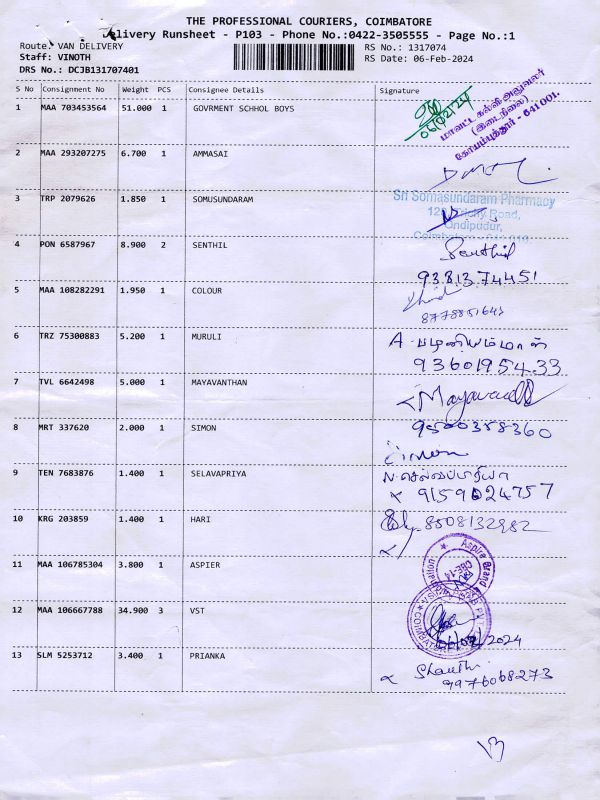 THE PROFESSIONAL COURIERS, COIMBATORE
Delivery Runsheet - P103 - Phone No.:0422-3505555 - Page No.:1
Route: VAN DELIVERY
RS No.: 1317074
Staff: VINOTH
RS Date: 06-Feb-2024
DRS No.: DCJB131707401
S No Consignment No Weight PCS Consignee Details Signature
1 MAA 703453564 51.000 1 GOVRMENT SCHHOL BOYS
06/02/24
மாவட்ட கல்வி அலுவலர்
(இடைநிலை)
கோயம்புத்தூர் - 641 001.
2 MAA 293207275 6.700 1 AMMASAI
3 TRP 2079626 1.850 1 SOMUSUNDARAM
Sri Somasundaram Pharmacy
Trichy Road,
Ondipudur,
4 PON 6587967 8.900 2 SENTHIL
Senthil
9381374451
5 MAA 108282291 1.950 1 COLOUR
6 TRZ 75300883 5.200 1 MURULI
A. பழனியம்மாள்
9360195433
7 TVL 6642498 5.000 1 MAYAVANTHAN
9500358360
8 MRT 337620 2.000 1 SIMON
Simon
9 TEN 7683876 1.400 1 SELAVAPRIYA
N. செல்வப்பிரியா
9159024757
10 KRG 203859 1.400 1 HARI
8508132982
11 MAA 106785304 3.800 1 ASPIER
Aspire Brand
CBE-14
12 MAA 106667788 34.900 3 VST
COIMBATORE
2024
13 SLM 5253712 3.400 1 PRIANKA
Shanthi
9976068273
13